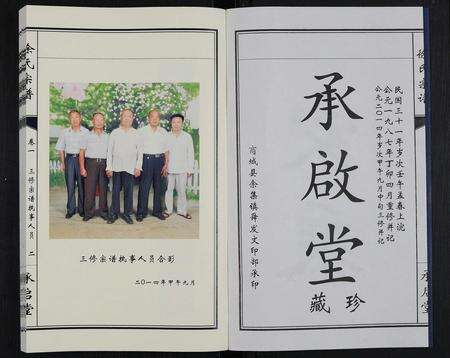 徐氏宗谱
民国三十一年岁次壬午孟春上浣
公元一九八七年丁卯四月重修并记
公元二〇一四年岁次甲午九月中旬三修并记
承啟堂
珍藏
商城县余集镇舜发文印部承印
承启堂
氏宗谱
卷一 三修宗谱执事人员 二
承启堂
三修宗谱执事人员合影
二〇一四年甲午九月